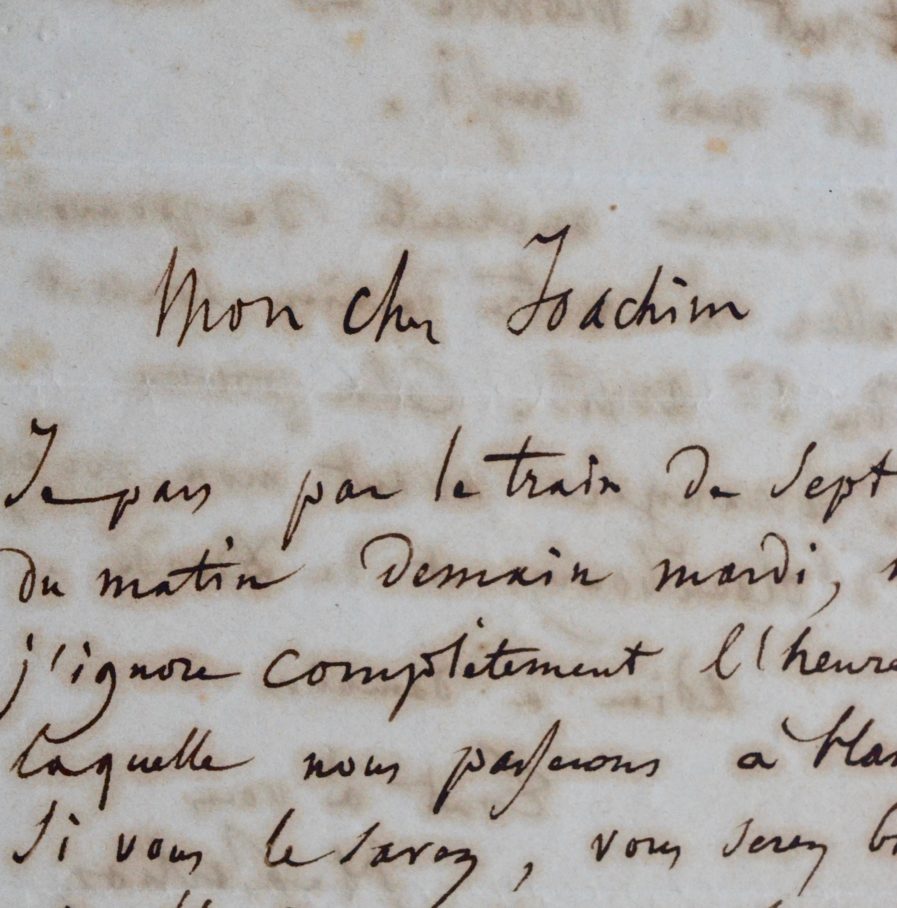 Mon cher Joachim
Je pars par le train de sept
du matin demain mardi,
j'ignore complètement l'heure
laquelle nous passerons à
Si vous le savez, vous serez